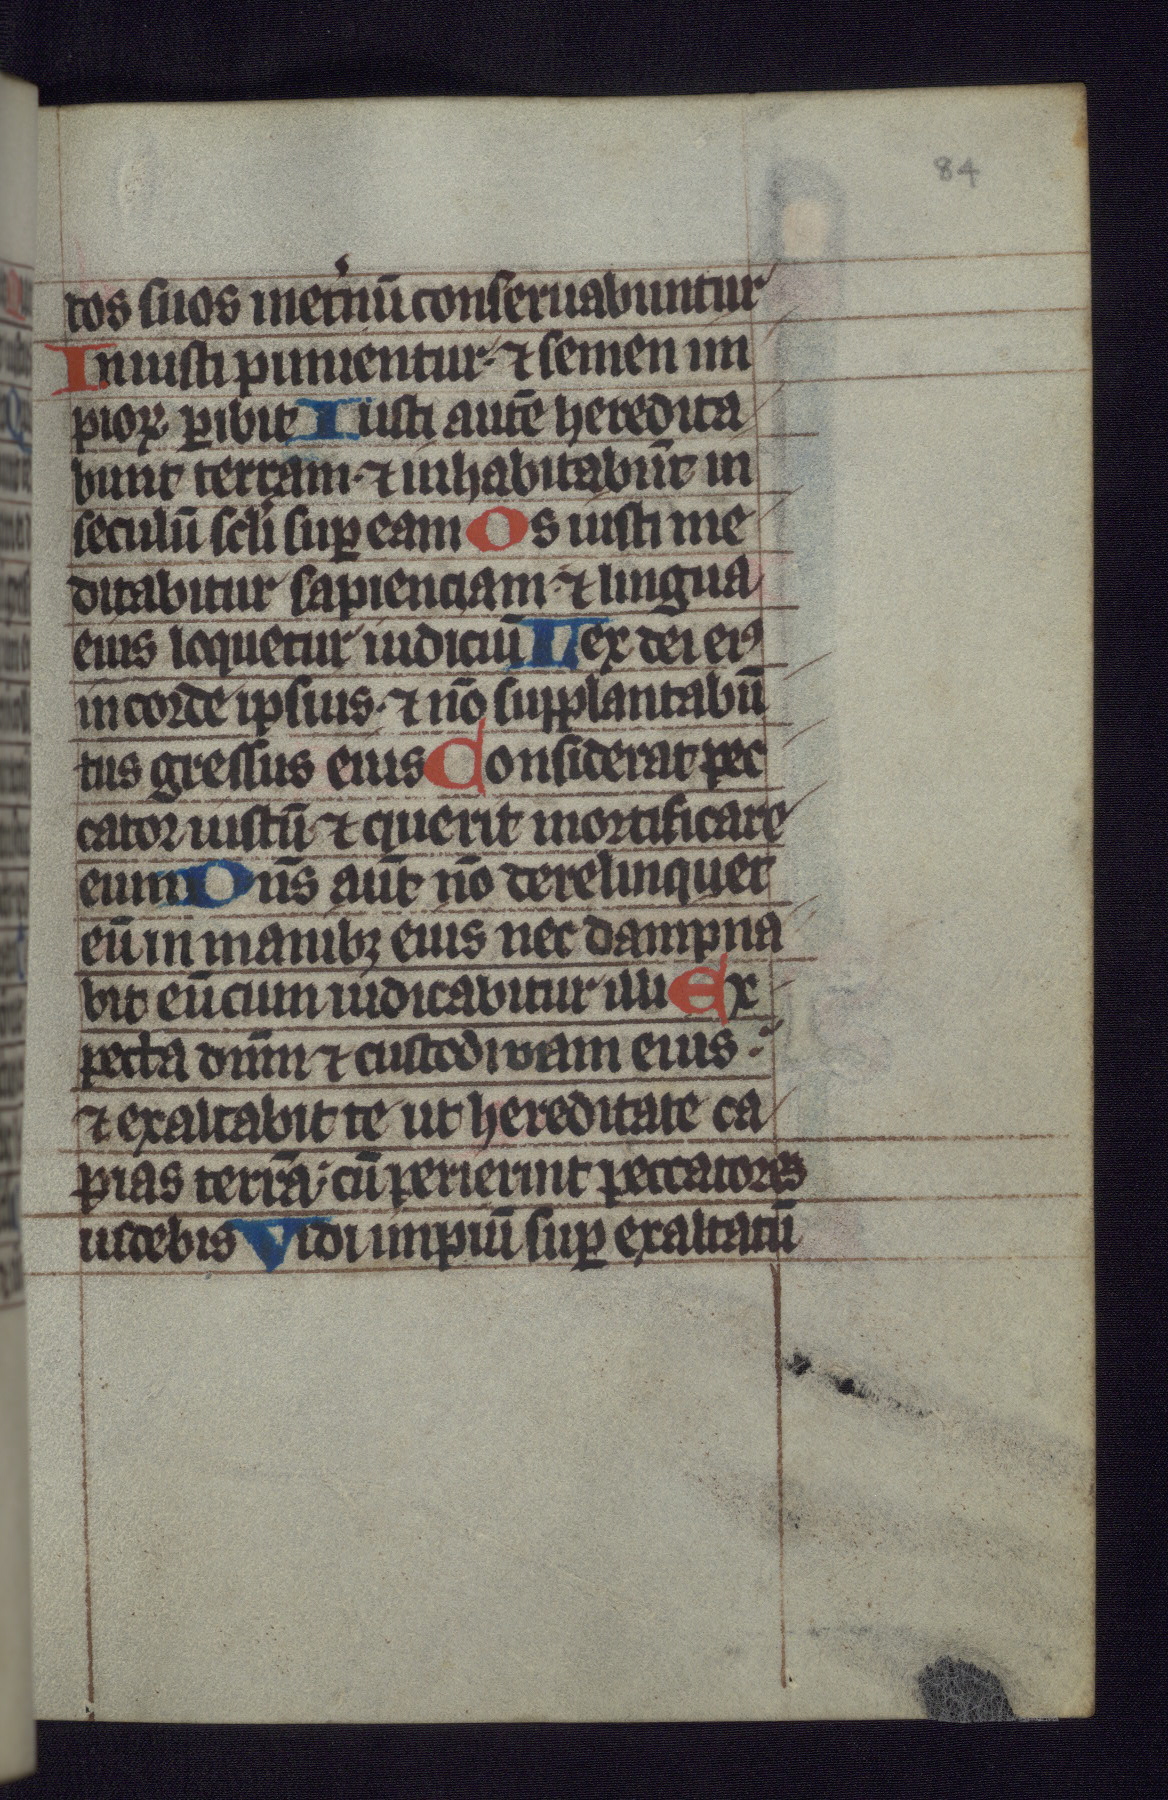 84
tos suos inet'nū conseruabuntur
Iniusti punientur· ⁊ semen im
pioꝝ ꝑibit Iusti autē heredita
bunt terram· ⁊ inhabitabūt in
seculū scl'i suꝑ eam Os iusti me
ditabitur sapienciam· ⁊ lingua
eius loquetur iudiciū Lex dei eiꝰ
in corde ipsius· ⁊ nō supplantabū
tus gressus eius Considerat pec
cator iustū· ⁊ querit mortificare
eum Dn̄s aūt nō derelinquet
eū in manibꝫ eius nec dampna
bit eū cum iudicabitur illi Ex
pecta dn̄m ⁊ custodi uiam eius·
⁊ exaltabit te ut hereditate ca
pias terrā· cū perierint peccatores
uidebis Vidi impiū suꝑ exaltatū